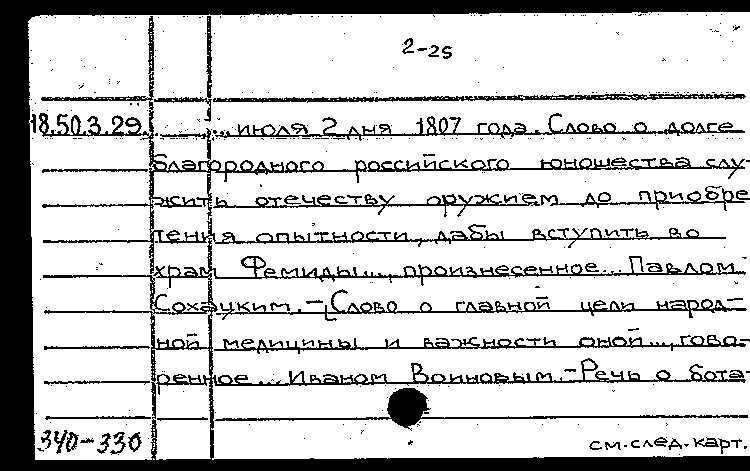 2-25
18.50.3.29. ...июля 2 дня 1807 года. Слово о долге
благородного российского юношества слу-
жить отечеству оружием до приобре
тения опытности, дабы вступить во
храм Фемиды..., произнесенное... Павлом
Сохацким.-[Слово о главной цели народ-
ной медицины и важности оной..., гово-
ренное... Иваном Воиновым.-Речь о бота-
340-330 см.след.карт.